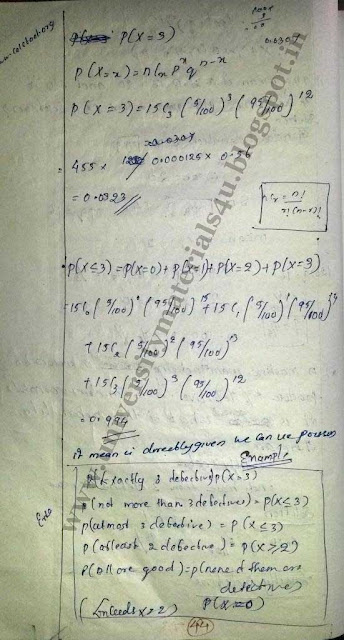 P(X=3)
P(X=x) = nCx p^x q^n-x
P(X=3) = 15C3 (5/100)^3 (95/100)^12
= 455 x 0.000125 x 0.56
= 0.0323
nCr = n!/r!(n-r)!
P(X≤3) = P(X=0) + P(X=1) + P(X=2) + P(X=3)
= 15C0 (5/100)^0 (95/100)^15 + 15C1 (5/100)^1 (95/100)^14
+ 15C2 (5/100)^2 (95/100)^13
+ 15C3 (5/100)^3 (95/100)^12
= 0.994
if mean is directly given we can use poisson
Example
P(Exactly 3 defective) P(X=3)
(not more than 3 defectives) = P(X≤3)
P(atmost 3 defective) = P(X≤3)
P(atleast 2 defective) = P(X≥2)
P(all are good) = P(none of them are
defective)
P(X=0)
(Exceeds x>2)
www.universitymaterials4u.blogspot.in